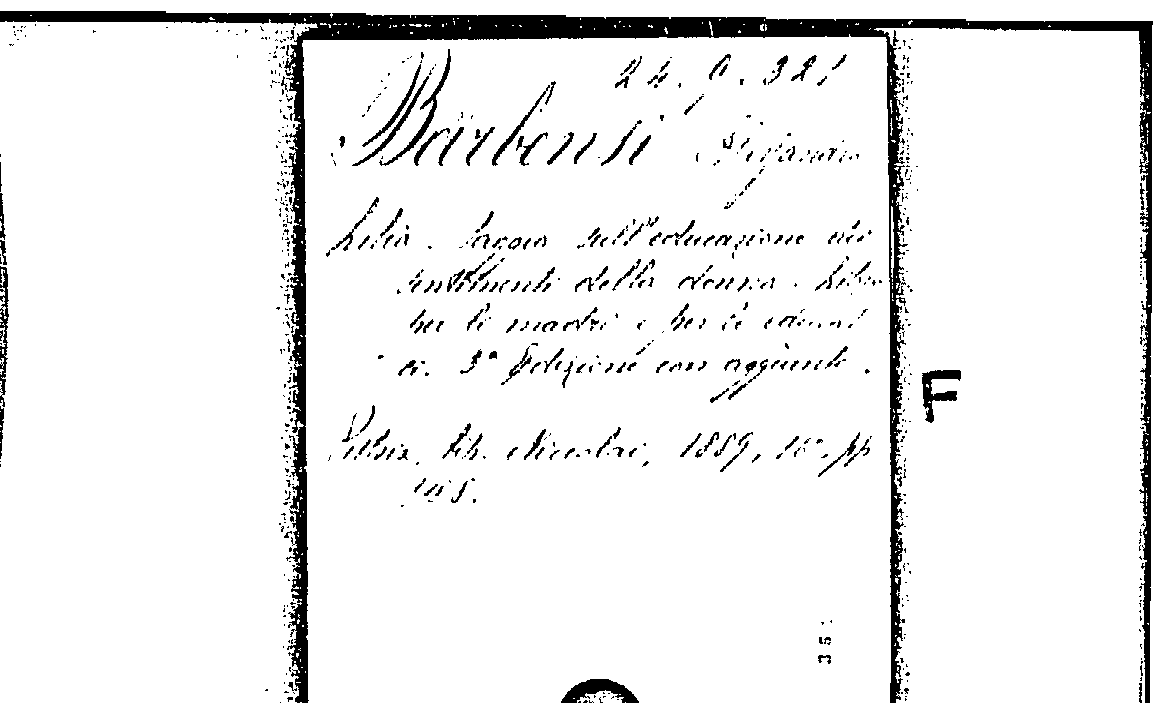 24. 9. 321
Barbensi
Lidia. Saggio sull'educazione dei
sentimenti della donna. Libro
per le madri e per le educat
ci. 3ª Edizione con aggiunte.
tip. 1889, 16°, pp
F
351